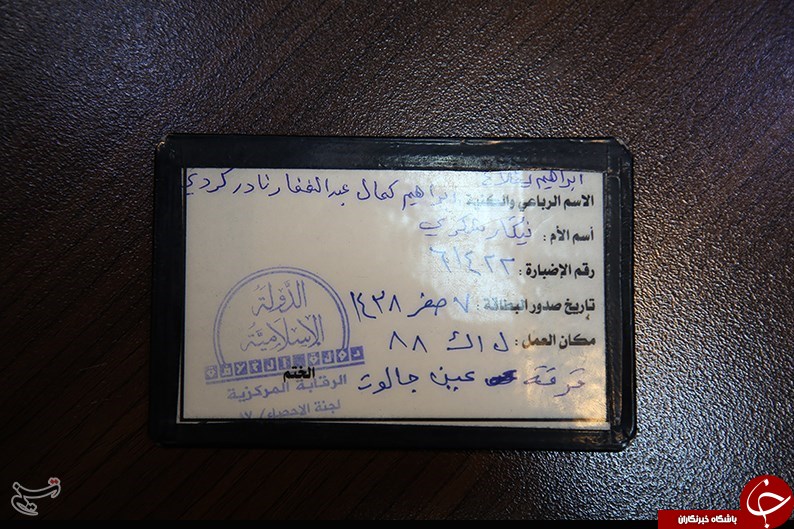 ابراهيم
الاسم الرباعي والكنية: ابراهيم كمال عبدالغفار نادر كردي
أسم الأم:
رقم الإضبارة: ٦١٤٢٢
تاريخ صدور البطاقة: ٧ صفر ١٤٣٨
مكان العمل: ل اك ٨٨
فرقة عين جالوت
الختم
الدولة
الإسلامية
الرقابة المركزية
لجنة الاحصاء/ ١٧
تسنیم
باشگاه خبرنگاران